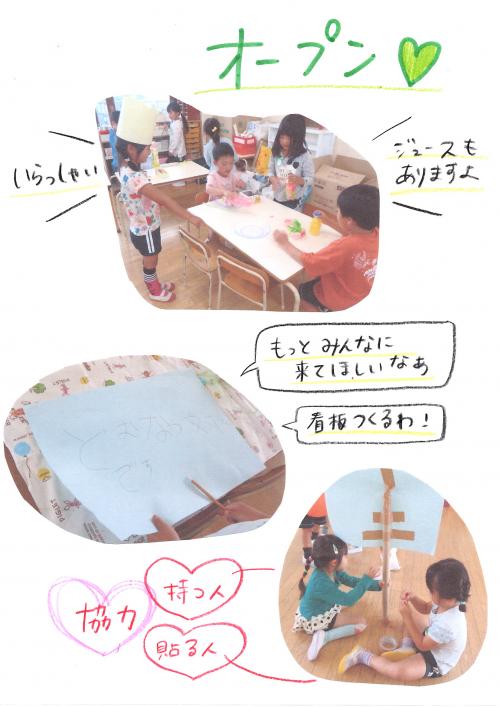 オープン
いらっしゃい
ジュースも
ありますよ
もっとみんなに
来てほしいなあ
看板つくるわ！
です
協力
持つ人
貼る人